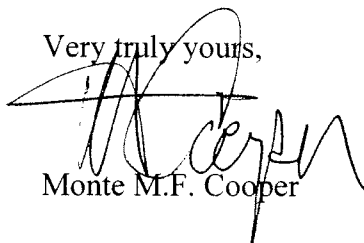 Very truly yours,
Monte M.F. Cooper